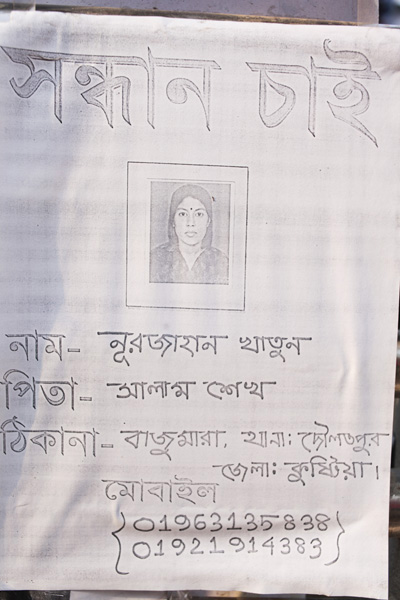 সন্ধান চাই
নাম- নূরজাহান খাতুন
পিতা- আলাম শেখ
ঠিকানা- বাজুমারা, থানা: দৌলতপুর
জেলা: কুষ্টিয়া।
মোবাইল
01963135838
01921914383